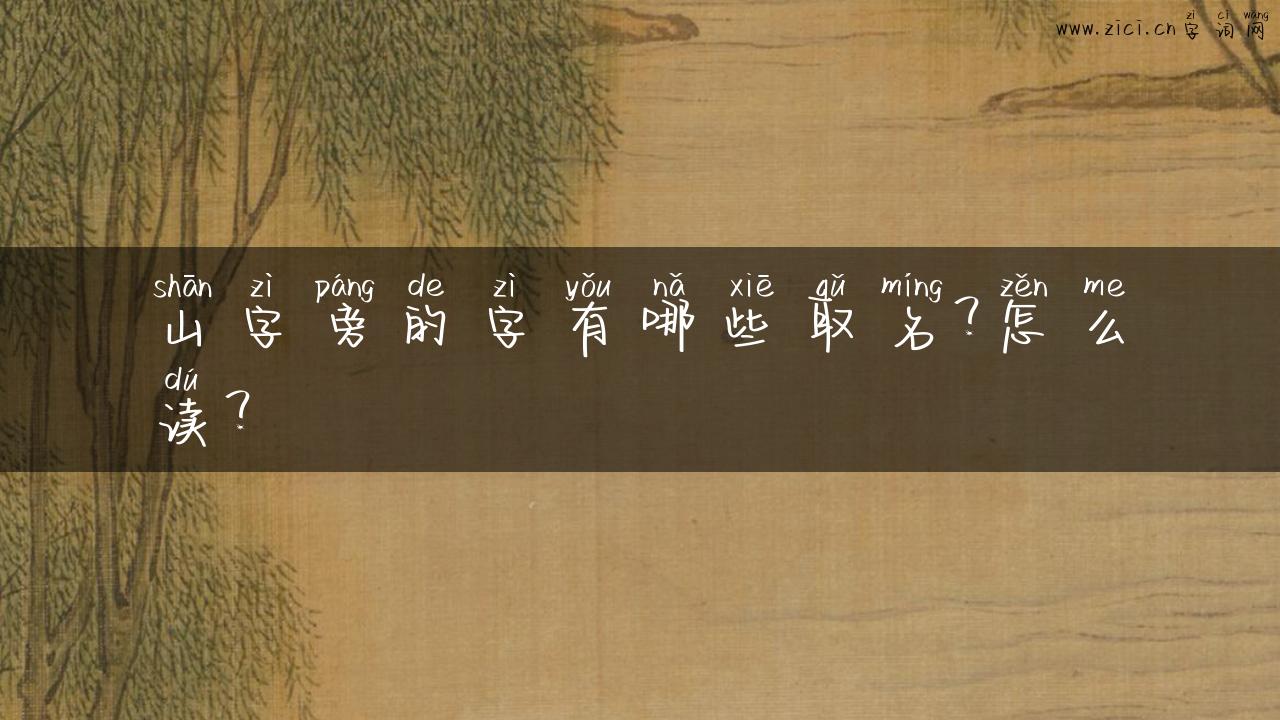 zì cí wǎng
www.zici.cn字词网
shān zì páng de zì yǒu nǎ xiē qǔ míng zěn me
山字旁的字有哪些取名?怎么
dú
读?